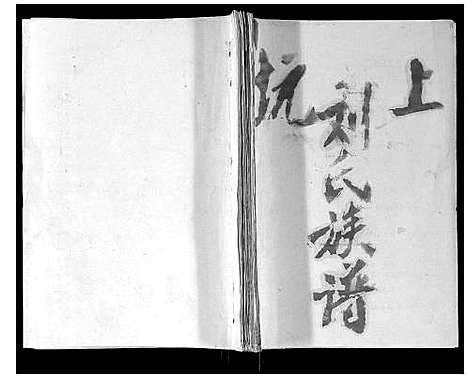 上杭
刘氏族谱